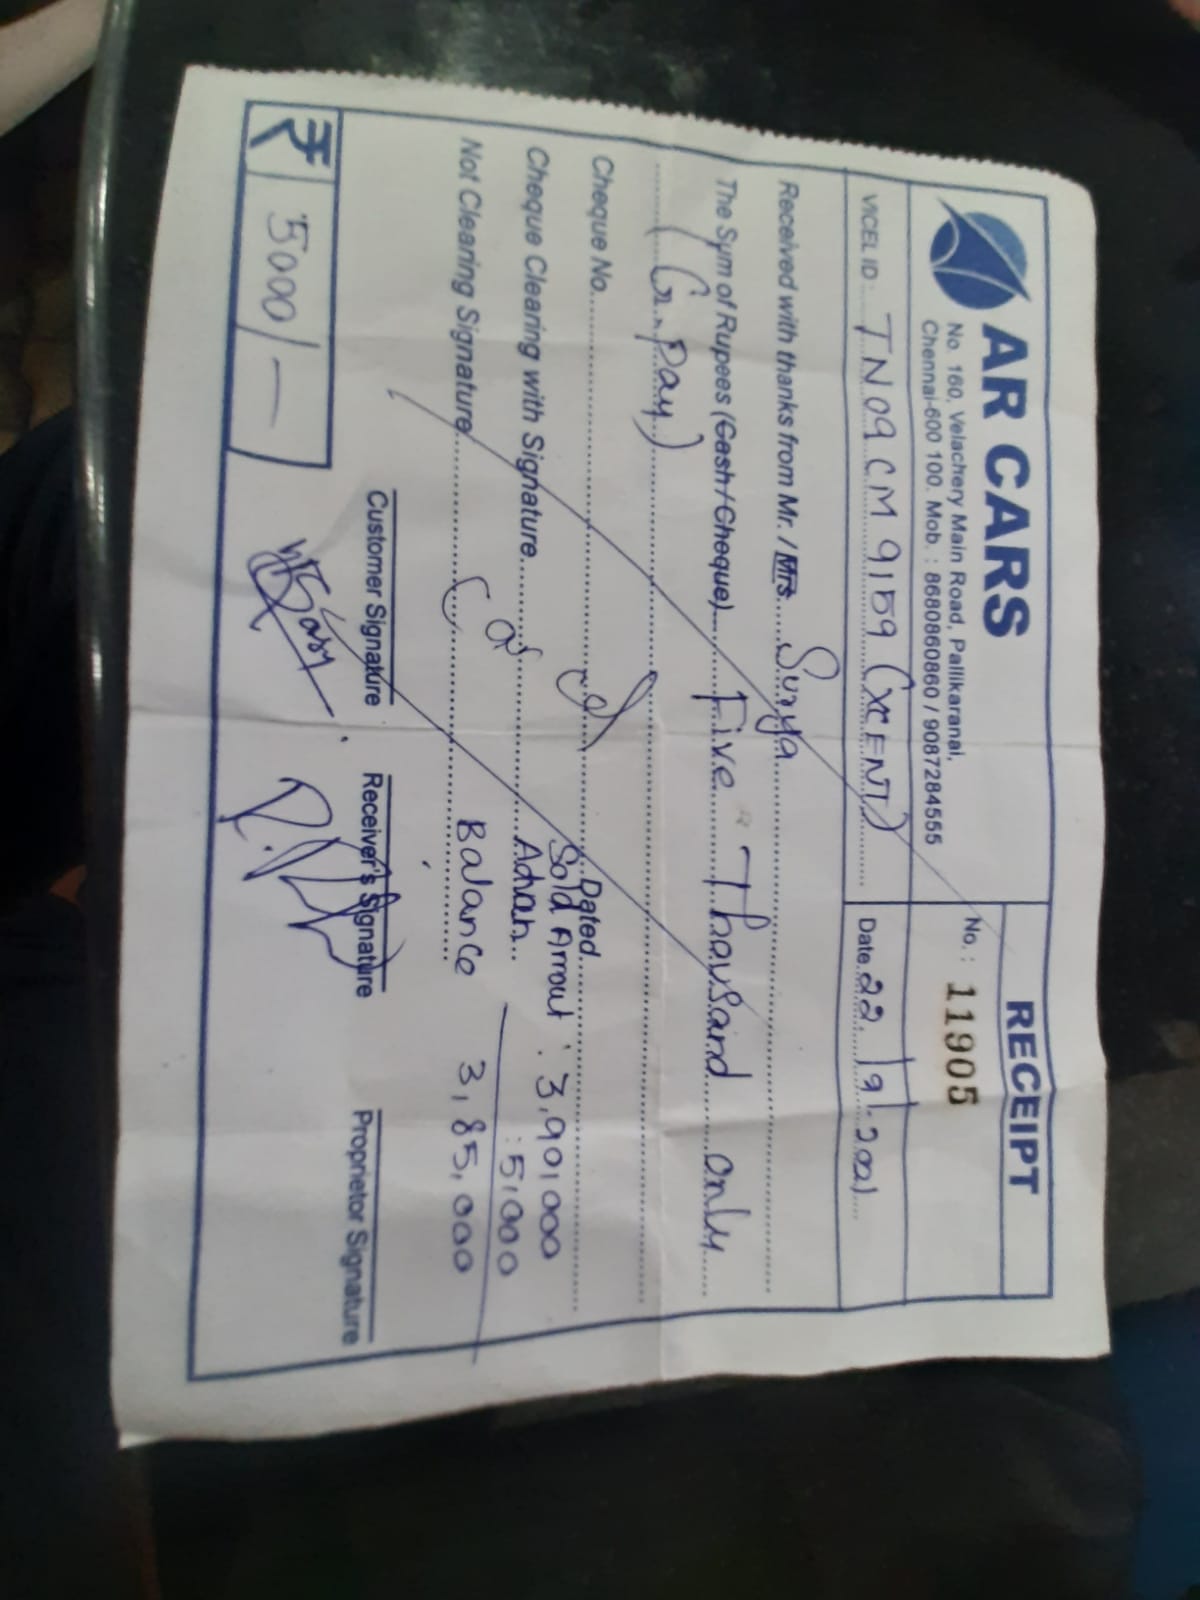 AR CARS
No. 160, Velachery Main Road, Pallikaranai,
Chennai-600 100. Mob. : 8680860860 / 9087284555
RECEIPT
No. : 11905
VICEL ID : TN09CM9159 (XCENT)
Date 22/9/2021
Received with thanks from Mr. / Mrs. Surya
The Sym of Rupees (Cash / Cheque) Five Thousand only
(G.Pay)
Cheque No. Dated
Sold Amout : 3,90,000
Cheque Clearing with Signature Advan : 5,000
Not Clearing Signature Balance 3,85,000
₹ 5000/-
Customer Signature Receiver's Signature Proprietor Signature